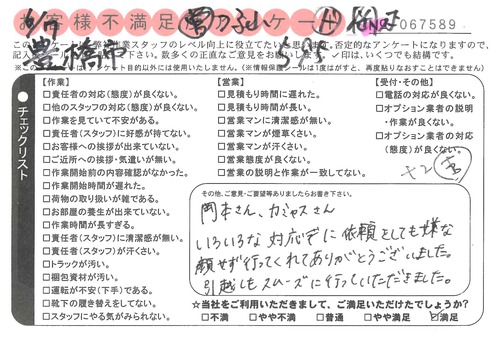 お客様不満足度アンケート
067589
このアンケートは弊社作業スタッフのレベル向上に役立てたいと思います。否定的なアンケートになりますので、
記入下さい。数多くの正直な
✓印は、いくつでも結構です。
豊橋市
アンケート目的以外には使用いたしません。(※情報保護シールは1度はがすと、再度貼りなおすことはできません)
●チェックリスト
【作業】
□責任者の対応(態度)が良くない。
□他のスタッフの対応(態度)が良くない。
□作業を見ていて不安がある。
□責任者(スタッフ)に好感が持てない。
□お客様への挨拶が出来ていない。
□ご近所への挨拶・気遣いが無い。
□作業開始前の内容確認がなかった。
□作業開始時間が遅れた。
□荷物の取り扱いが雑である。
□お部屋の養生が出来ていない。
□作業時間が長すぎる。
□責任者(スタッフ)に清潔感が無い。
□責任者(スタッフ)が汗くさい。
□トラックが汚い。
□梱包資材が汚い。
□運転が不安(下手)である。
□靴下の履き替えをしてない。
□スタッフにやる気がみられない。
【営業】
□見積もり時間に遅れた。
□見積もり時間が長い。
□営業マンに清潔感が無い。
□営業マンが煙草くさい。
□営業マンが汗くさい。
□営業態度が良くない。
□営業の説明と作業が一致してない。
【受付・その他】
□電話の対応が良くない。
□オプション業者の説明
・作業が良くない。
□オプション業者の対応
(態度)が良くない。
+2
その他、ご意見・ご要望等ありましたらお書き下さい。
岡本さん、カジャスさん
いろいろな対応ぎに依頼をしても嫌な
顔せず行ってくれてありがとうございました。
引越しもスムーズに行っていただきました。
☆当社をご利用いただきまして、ご満足いただけたでしょうか?
□不満 □やや不満 □普通 □やや満足 ☑満足